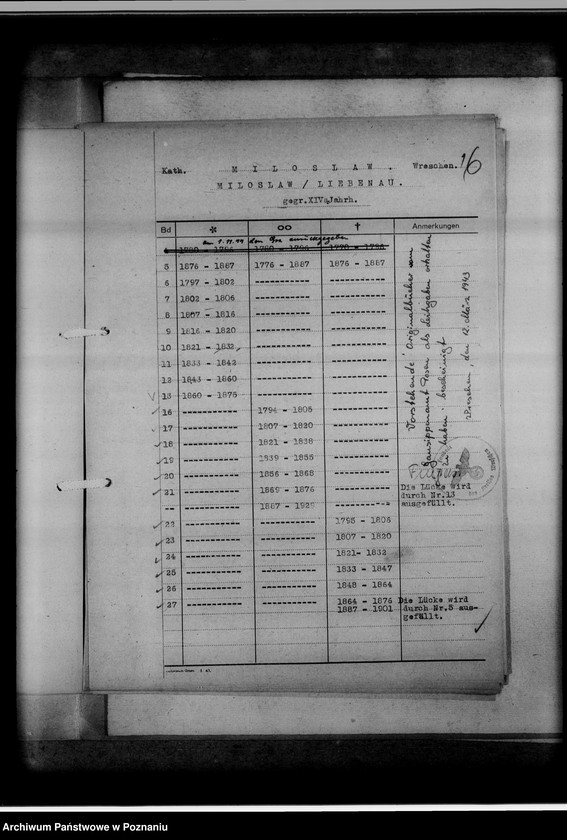 Kath. MILOSLAW. Wreschen. 16
MILOSLAW / LIEBENAU.
gegr.XIV.Jahrh.
Bd * oo † Anmerkungen
am 9.11.44 dem zurückgegeben
4 1780 - 1796 1780 - 1796 1775 - 1794
5 1876 - 1887 1776 - 1887 1876 - 1887
6 1797 - 1802 ----------- -----------
7 1802 - 1806 ----------- -----------
8 1807 - 1816 ----------- -----------
9 1816 - 1820 ----------- -----------
10 1821 - 1832 ----------- -----------
11 1833 - 1842 ----------- -----------
12 1843 - 1860 ----------- -----------
13 1860 - 1875 ----------- -----------
16 ----------- 1794 - 1805 -----------
17 ----------- 1807 - 1820 -----------
18 ----------- 1821 - 1838 -----------
19 ----------- 1839 - 1855 -----------
20 ----------- 1856 - 1868 -----------
21 ----------- 1869 - 1876 ----------- Die Lücke wird
durch Nr.13
-- ----------- 1887 - 192 ----------- ausgefüllt.
22 ----------- ----------- 1795 - 1806
23 ----------- ----------- 1807 - 1820
24 ----------- ----------- 1821- 1832
25 ----------- ----------- 1833 - 1847
26 ----------- ----------- 1848 - 1864
27 ----------- ----------- 1864 - 1876 Die Lücke wird
1887 - 1901 durch Nr.5 aus-
gefüllt.
Vorstehende Originalbücher vom
Gausippenamt Posen als Leihgaben erhalten
zu haben bescheinigt
Wreschen, den 12. März 1943
Archiwum Państwowe w Poznaniu